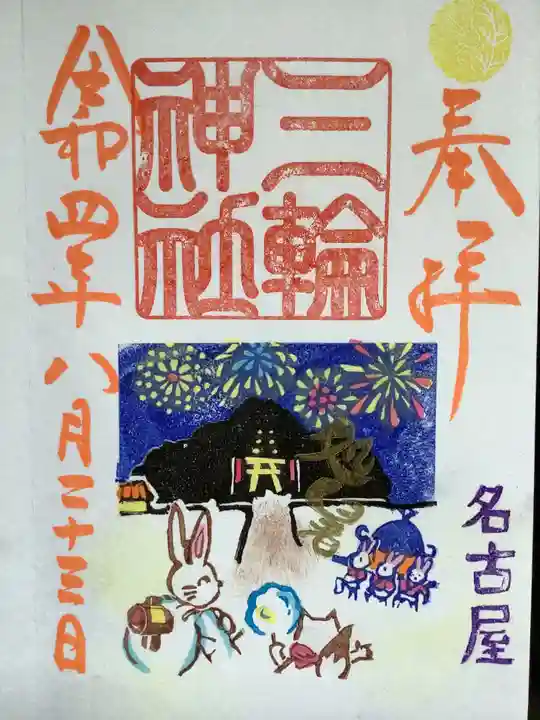 奉拝
三輪
神社
令和四年八月二十三日
名古屋